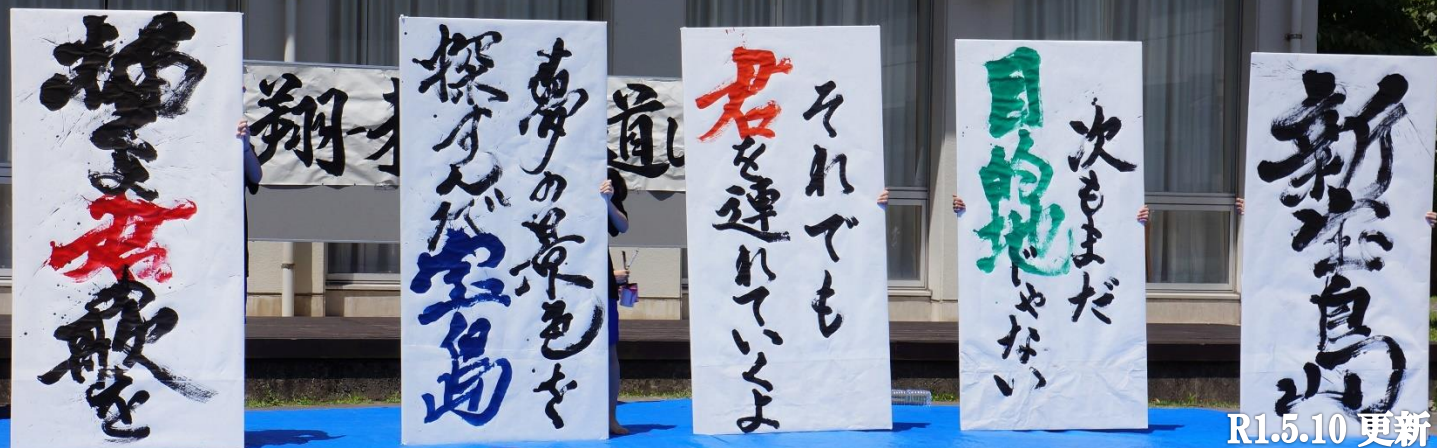 新宝島
次もまだ
目的地じゃない
それでも
君を連れていくよ
夢の景色を
探すんだ宝島
くよ君を
翔
道
R1.5.10 更新